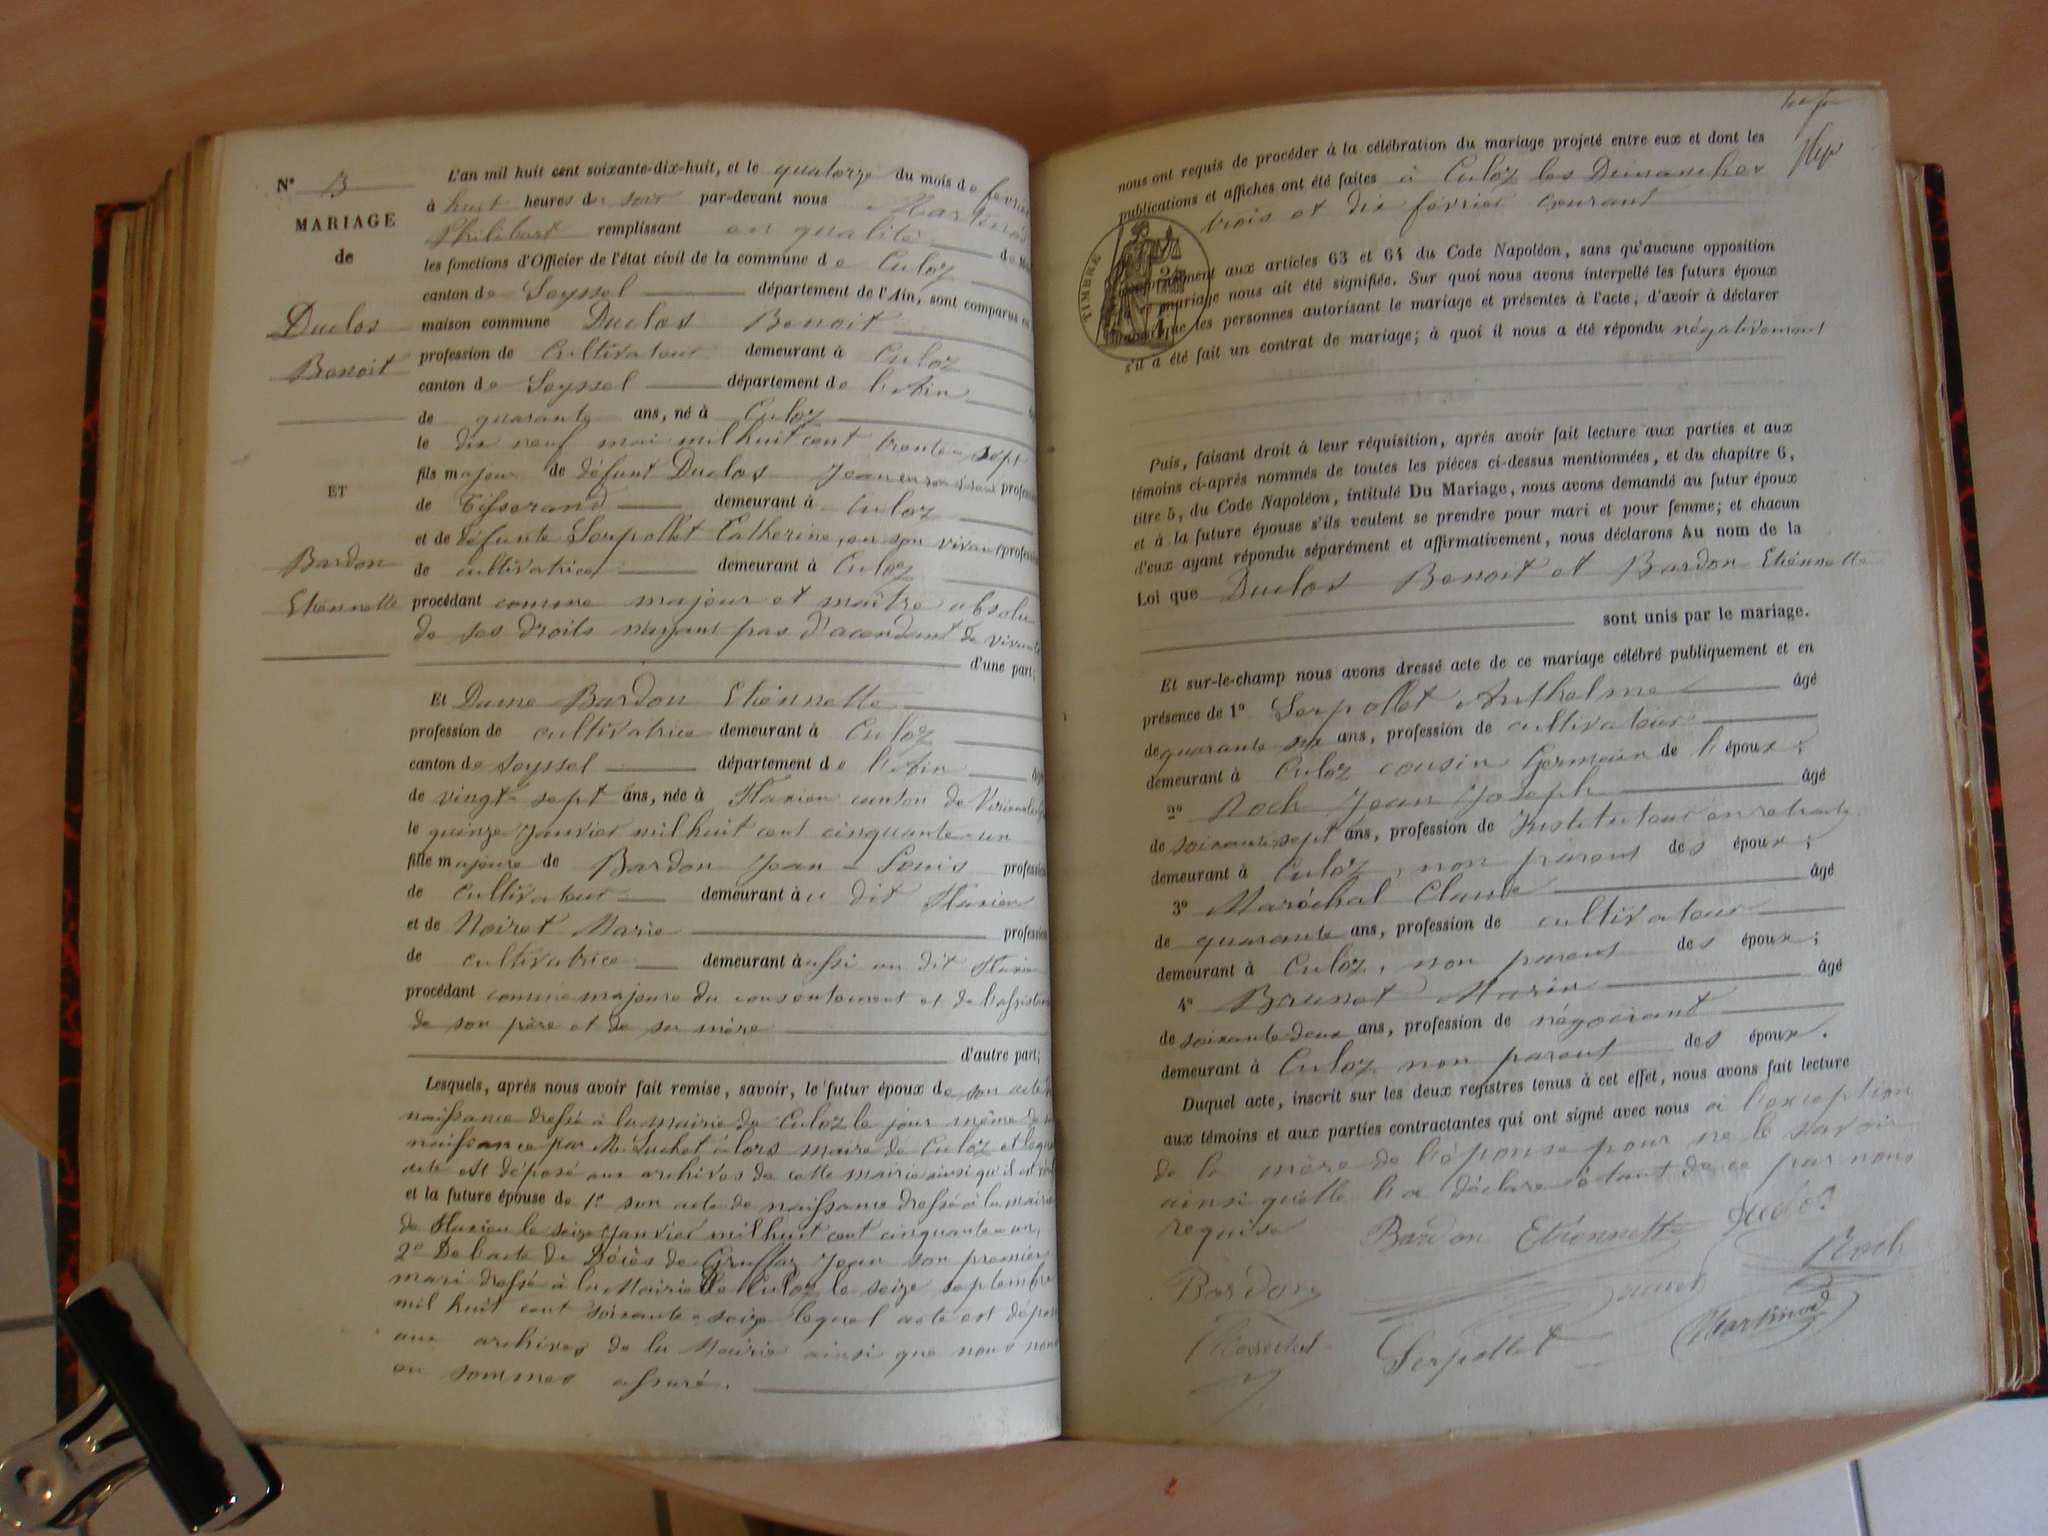 N° 3
MARIAGE
de
Duclos
Benoit
ET
Bardon
Etiennette
L'an mil huit cent soixante-dix-huit, et le quatorze du mois de fevrier
à huit heures du soir par-devant nous Martinod
Philibert remplissant en qualité de
les fonctions d'Officier de l'état civil de la commune de Culoz
canton de Seyssel département de l'Ain, sont comparus en
maison commune Duclos Benoit
profession de Cultivateur demeurant à Culoz
canton de Seyssel département de l'Ain
de quarante ans, né à Culoz
le dix neuf mai mil huit cent trente-sept
fils majeur de défunt Duclos Jean en son vivant profession
de Tisserand demeurant à Culoz
et de défunte Serpollet Catherine, en son vivant profession
de cultivatrice demeurant à Culoz
procédant comme majeur et maître absolu
de ses droits n'ayant pas d'acendant de vivants
d'une part;
Et Dame Bardon Etiennette
profession de cultivatrice demeurant à Culoz
canton de Seyssel département de l'Ain âgé
de vingt-sept ans, née à Flaxieu canton de
le quinze Janvier mil huit cent cinquante-un
fille majeure de Bardon Jean-Louis profession
de Cultivateur demeurant à u dit Flaxieu
et de Noiret Marie profession
de cultivatrice demeurant à ussi au dit Flaxieu
procédant comme majeure du consentement et de l'assistance
de son père et de sa mère
d'autre part;
Lesquels, après nous avoir fait remise, savoir, le futur époux de son acte de
naissance dressé à la mairie de Culoz le jour même de sa
naissance par M. Suchet alors maire de Culoz et lequel
acte est déposé aux archives de cette mairie ainsi qu'il est
et la future épouse de 1° son acte de naissance dressé à la mairie
de Flaxieu le seize Janvier mil huit cent cinquante-un,
2° De l'acte de Décès de Jean son premier
mari dressé à la Mairie de Culoz le seize septembre
mil huit cent soixante-seize lequel acte est déposé
aux archives de la Mairie ainsi que nous nous
en sommes assuré.
nous ont requis de procéder à la célébration du mariage projeté entre eux et dont les
publications et affiches ont été faites à Culoz les Dimanches
trois et dix février courant
TIMBRE
conformément aux articles 63 et 64 du Code Napoléon, sans qu'aucune opposition
audit mariage nous ait été signifiée. Sur quoi nous avons interpellé les futurs époux
ainsi que les personnes autorisant le mariage et présentes à l'acte, d'avoir à déclarer
s'il a été fait un contrat de mariage; à quoi il nous a été répondu négativement
Puis, faisant droit à leur réquisition, après avoir fait lecture aux parties et aux
témoins ci-après nommés de toutes les pièces ci-dessus mentionnées, et du chapitre 6,
titre 5, du Code Napoléon, intitulé Du Mariage, nous avons demandé au futur époux
et à la future épouse s'ils veulent se prendre pour mari et pour femme; et chacun
d'eux ayant répondu séparément et affirmativement, nous déclarons Au nom de la
Loi que Duclos Benoit et Bardon Etiennette
sont unis par le mariage.
Et sur-le-champ nous avons dressé acte de ce mariage célébré publiquement et en
présence de 1° Serpollet Anthelme âgé
de quarante six ans, profession de cultivateur
demeurant à Culoz cousin Germain de l'époux;
2° Roch Jean Joseph âgé
de soixante sept ans, profession de Instituteur en retraite
demeurant à Culoz, non parent des époux;
3° Maréchal Claude âgé
de quarante ans, profession de cultivateur
demeurant à Culoz, non parent des époux;
4° Brunet Marin âgé
de soixante deux ans, profession de négociant
demeurant à Culoz non parent des époux.
Duquel acte, inscrit sur les deux registres tenus à cet effet, nous avons fait lecture
aux témoins et aux parties contractantes qui ont signé avec nous à l'exception
de la mère de l'épouse pour ne le savoir
ainsi qu'elle l'a déclaré étant de ce par nous
requise
Bardon Etiennette
Roch
Bardon
Brunet
Martinod
Marechal
Serpollet